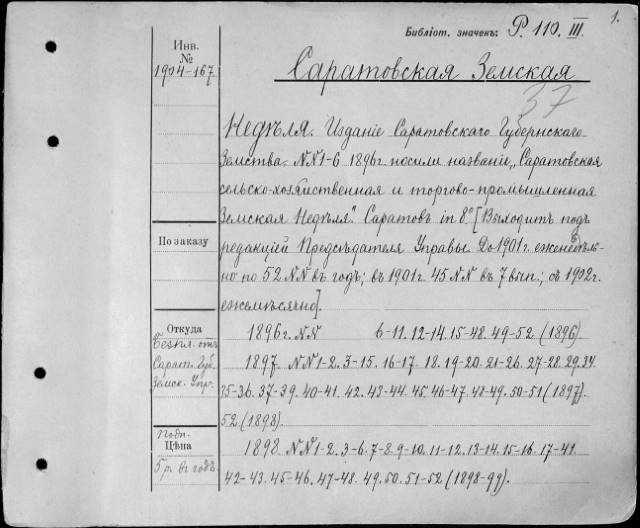 Библіот. значекъ: P. 110. III.
1.
Инв.
№
1904-167
Саратовская Земская
37
Недѣля. Изданіе Саратовскаго Губернскаго
Земства. NN 1-6 1896г. носили названіе „Саратовская
сельско-хозяйственная и торгово-промышленная
Земская Недѣля". Саратовъ in 8° [Выходитъ подъ
По заказу
редакціей Предсѣдателя Управы. До 1901г. еженедѣль-
но по 52 NN въ годъ; въ 1901г. 45 NN въ 7 вып.; съ 1902г.
ежемѣсячно].
Откуда
Безпл. отъ
Сарат. Губ.
Земск. Упр.
1896г. NN 6-11. 12-14. 15-48. 49-52 (1896)
1897. NN 1-2. 3-15. 16-17. 18. 19-20. 21-26. 27-28. 29. 34.
35-36. 37-39. 40-41. 42. 43-44. 45. 46-47. 48-49. 50-51 (1897).
52 (1898)
Подп.
Цѣна
5 р. въ годъ
1898. NN 1-2. 3-6. 7-8. 9-10. 11-12. 13-14. 15-16. 17-41.
42-43. 45-46. 47-48. 49. 50. 51-52 (1898-99).